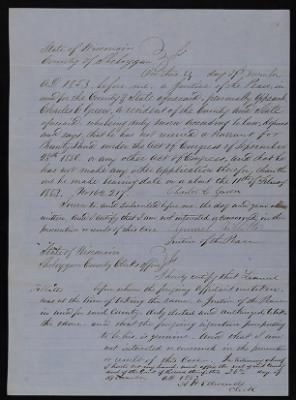 State of Wisconsin
County of Sheboygan } ss
On this day of December
A.D. 1853 before me, a Justice of the Peace, in
and for the County & State aforesaid, personally appeared
Charles C. Green, a resident of the County and State
aforesaid, who being duly sworn according to law, deposes
and says, that he has not received a Warrant for
Bounty Land under the Act of Congress of September
28th 1850. or any other Act of Congress, and that he
has not made any other application therefor, than the
one he made bearing date on or about the of February
1852.
Charles C. Green
Sworn to and subscribed before me the day and year above
written, and I certify that I am not interested or concerned in the
prosecution or result of this case.
Justice of the Peace
State of Wisconsin
Sheboygan County Clerk's office } ss
I hereby certify that
before whom the foregoing affidavit was taken
was at the time of taking the same, a Justice of the Peace
in and for said County duly elected and authorized to take
the same and that the foregoing signature purporting
to be his, is genuine. And that I am
not interested or concerned in the prosecution
or result of this case. In testimony whereof
I hereto set my hand and affix the seal of
the this 26th day of
December A.D. 1853
Clerk